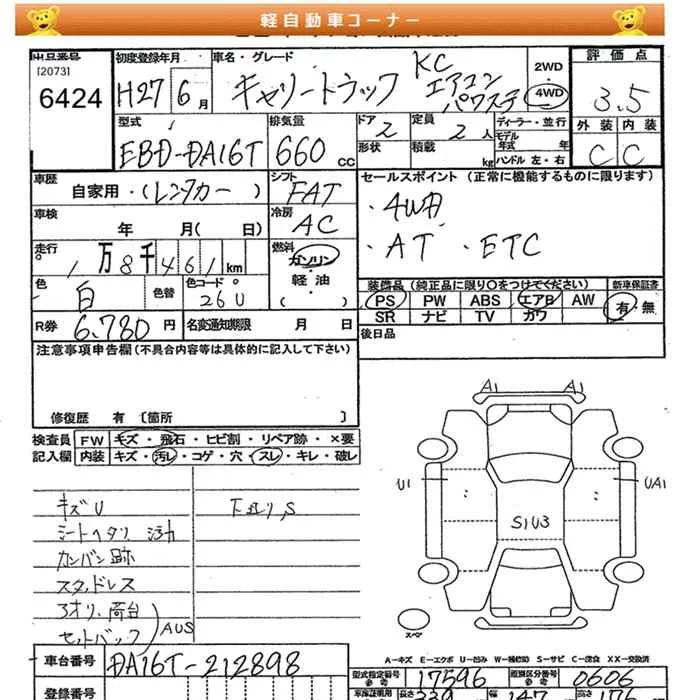 軽自動車コーナー
出品番号 初度登録年月 車名・グレード 評価点
[2073]
6424 H27 6月 キャリートラック KC エアコン パワステ 2WD 4WD 3.5
型式 排気量 ドア 2 定員 2人 ディーラー・並行 外装 内装
EBD-DA16T 660cc 形状 積載 kg モデル年式 年 ハンドル 左・右 C C
車歴 自家用・(レンタカー) シフト FAT セールスポイント (正常に機能するものに限ります)
車検 年 月( 日) 冷房 AC ・4WD
走行 1万8千461km 燃料 ガソリン・軽油・( ) ・AT ・ETC
色 白 色替 色コード 26U 装備品(純正品に限り○をつけてください) 新車保証書
PS PW ABS エアB AW 有・無
SR ナビ TV カワ
R券 6,780円 名変通知期限 月 日 後日品
注意事項申告欄(不具合内容等は具体的に記入して下さい)
修復歴 有 [箇所 ]
検査員 FW キズ・飛石・ヒビ割・リペア跡・×要
記入欄 内装 キズ・汚レ・コゲ・穴・スレ・キレ・破レ
キズU 下廻リ,S
シートヘタリ 汚れ
カンバン跡
スタッドレス
3オリ、荷台
セットバック AUS
A1 A1
U1 UA1
S1U3
スペア
A-キズ E-エクボ U-凹み W-補修跡 S-サビ C-腐食 XX-交換済
車台番号 DA16T-212898
型式指定番号 参考 17596 類別区分番号 参考 0606
登録番号 車庫証明用 参考 長さ 339 幅 147 高さ